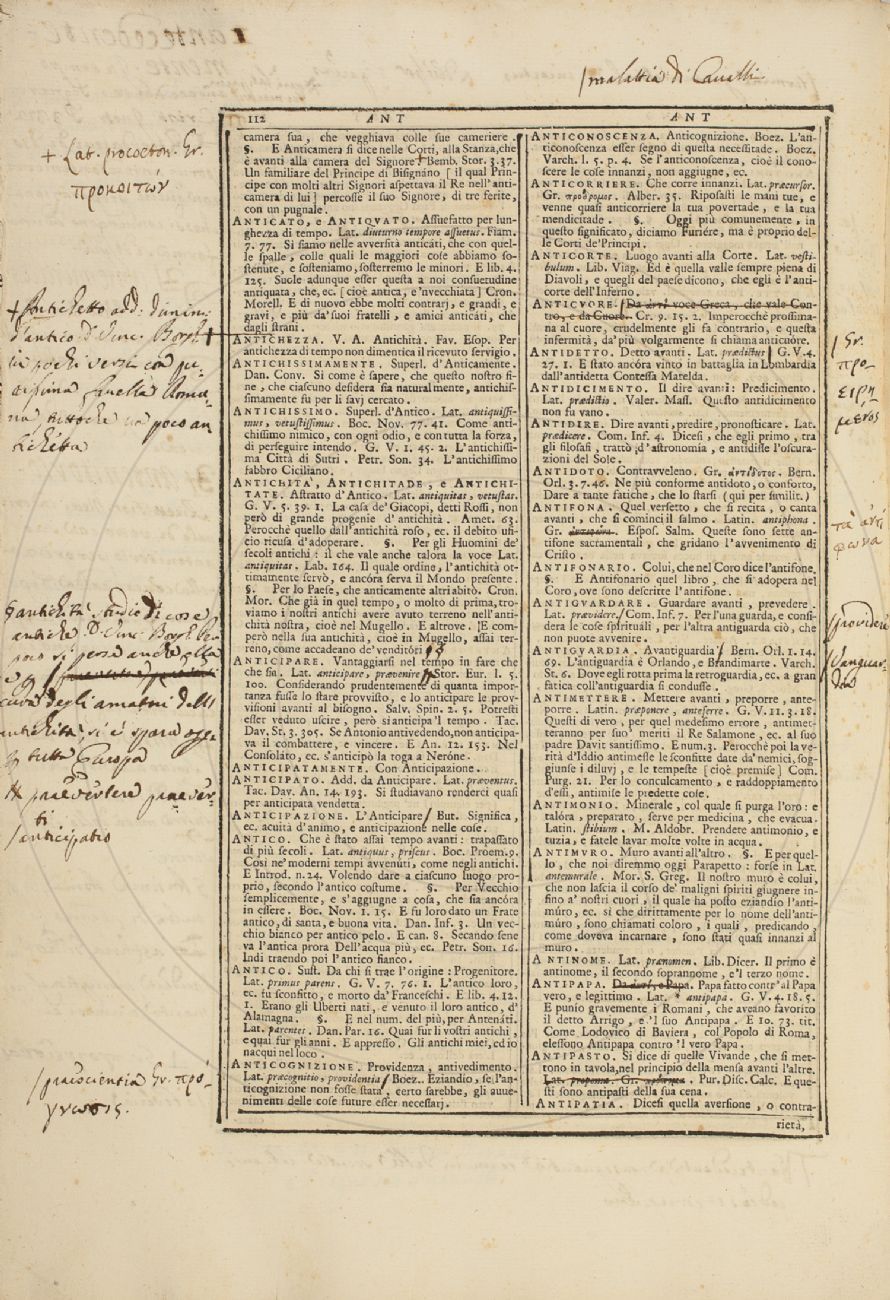 malattia di Cavalli
112 ANT ANT
+ Lat. procoeton. Gr.
προκοιτών
camera sua, che vegghiava colle sue cameriere.
§. E Anticamera si dice nelle Corti, alla Stanza, che
è avanti alla camera del Signore + Bemb. Stor. 3. 37.
Un familiare del Principe di Bisignáno [ il qual Prin-
cipe con molti altri Signori aspettava il Re nell'anti-
camera di lui ] percosse il suo Signore, di tre ferite,
con un pugnale.
ANTICATO, e ANTIQVATO. Assuefatto per lun-
ghezza di tempo. Lat. diuturno tempore assuetus. Fiam.
7. 77. Sì siamo nelle avversità anticáti, che con quel-
le spalle, colle quali le maggiori cose abbiamo so-
stenute, e sosteniamo, sosterremo le minori. E lib. 4.
125. Suole adunque esser questa a noi consuetudine
antiquata, che, ec. [ cioè antica, e 'nvecchiata ] Cron.
Morell. E di nuovo ebbe molti contrarj, e grandi, e
gravi, e più da' suoi fratelli, e amici anticáti, che
dagli strani.
+ Antichetto add. dimin.
d'antico D. Vinc. Borgh.
in pochi versi con pu-
rissima favella Roma-
na, tuttochè un poco an-
tichetta
ANTICHEZZA. V. A. Antichità. Fav. Esop. Per
antichezza di tempo non dimentica il ricevuto servigio.
ANTICHISSIMAMENTE. Superl. d'Anticamente.
Dan. Conv. Sì come è sapere, che questo nostro fi-
ne, che ciascuno desidera sia naturalmente, antichis-
simamente fu per li savj cercato.
ANTICHISSIMO. Superl. d'Antico. Lat. antiquissi-
mus, vetustissimus. Boc. Nov. 77. 41. Come anti-
chissimo nimico, con ogni odio, e con tutta la forza,
di perseguire intendo. G. V. 1. 45. 2. L'antichissi-
ma Città di Sutri. Petr. Son. 34. L'antichissimo
fabbro Ciciliano.
ANTICHITA', ANTICHITADE, e ANTICHI-
TATE. Astratto d'Antico. Lat. antiquitas, vetustas.
G. V. 5. 39. 1. La casa de' Giacopi, detti Rossi, non
però di grande progenie d'antichità. Amet. 63.
Perocchè quello dall'antichità roso, ec. il debito ufi-
cio ricusa d'adoperare. §. Per gli Huomini de'
secoli antichi: il che vale anche talora la voce Lat.
antiquitas. Lab. 164. Il quale ordine, l'antichità ot-
timamente servò, e ancóra serva il Mondo presente.
§. Per lo Paese, che anticamente altri abitò. Cron.
Mor. Che già in quel tempo, o molto di prima, tro-
viamo i nostri antichi avere avuto terreno nell'anti-
chità nostra, cioè nel Mugello. E altrove. E com-
però nella sua antichità, cioè in Mugello, assai ter-
reno, come accadeano de' venditóri
§ antichità, studio di cose
antiche D. Vinc. Borgh.
cura degli amatori dell'
antichità, si è sparsa oggi
tutta Europa
praevertere praever-
ti
/ anticipatio
ANTICIPARE. Vantaggiarsi nel tempo in fare che
che sia. Lat. anticipare, prævenire Stor. Eur. l. 5.
100. Considerando prudentemente di quanta impor-
tanza fusse lo stare provvisto, e lo anticipare le pro-
visioni avanti al bisogno. Salv. Spin. 2. 5. Potresti
esser veduto uscire, però si anticipa 'l tempo. Tac.
Dav. St. 3. 305. Se Antonio antivedendo, non anticipa-
va il combattere, e vincere. E An. 12. 153. Nel
Consolato, ec. s'anticipò la toga a Neróne.
ANTICIPATAMENTE. Con Anticipazione.
ANTICIPATO. Add. da Anticipare. Lat. præventus.
Tac. Dav. An. 14. 193. Si studiavano renderci quasi
per anticipata vendetta.
ANTICIPAZIONE. L'Anticipare / But. Significa,
ec. acuità d'animo, e anticipazione nelle cose.
ANTICO. Che è stato assai tempo avanti: trapassato
di più secoli. Lat. antiquus, priscus. Boc. Proem. 9.
Così ne' moderni tempi avvenúti, come negli antichi.
E Introd. n. 24. Volendo dare a ciascuno luogo pro-
prio, secondo l'antico costume. §. Per Vecchio
semplicemente, e s'aggiugne a cosa, che sia ancóra
in essere. Boc. Nov. 1. 15. E fu loro dato un Frate
antico, di santa, e buona vita. Dan. Inf. 3. Un vec-
chio bianco per antico pelo. E can. 8. Secando sene
va l'antica prora Dell'acqua più, ec. Petr. Son. 16.
Indi traendo poi l'antico fianco.
ANTICO. Sust. Da chi si trae l'origine: Progenitore.
Lat. primus parens. G. V. 7. 76. 1. L'antico loro,
ec. fu sconfitto, e morto da' Franceschi. E lib. 4. 12.
1. Erano gli Uberti nati, e venuto il loro antico, d'
Alamagna. §. E nel num. del più, per Antenáti.
Lat. parentes. Dan. Par. 16. Quai fur li vostri antichi,
e quai fur gli anni. E appresso. Gli antichi miei, ed io
nacqui nel loco.
/ praescientia Gr. πρό-
γνωσις.
ANTICOGNIZIONE. Providenza, antivedimento.
Lat. præcognitio, providentia / Boez. Eziandio, se l'an-
ticognizione non fosse stata, certo sarebbe, gli avve-
nimenti delle cose future esser necessarj.
ANTICONOSCENZA. Anticognizione. Boez. L'an-
ticonoscenza esser segno di questa necessitade. Boez.
Varch. l. 5. p. 4. Se l'anticonoscenza, cioè il cono-
scere le cose innanzi, non aggiugne, ec.
ANTICORRIERE. Che corre innanzi. Lat. præcursor.
Gr. πρόδρομος. Alber. 35. Riposasti le mani tue, e
venne quasi anticorriere la tua povertade, e la tua
mendicitade. §. Oggi più comunemente, in
questo significato, diciamo Furiére, ma è proprio del-
le Corti de' Principi.
ANTICORTE. Luogo avanti alla Corte. Lat. vesti-
bulum. Lib. Viag. Ed è quella valle sempre piena di
Diavoli, e quegli del paese dicono, che egli è l'anti-
corte dell'Inferno.
ANTICVORE. / Da ἀντὶ voce Greca, che vale Con-
tro, e da Cuore. Cr. 9. 15. 2. Imperocchè prossima-
na al cuore, crudelmente gli fa contrario, e questa
infermità, da' più volgarmente si chiama anticuóre.
ANTIDETTO. Detto avanti. Lat. prædictus / G. V. 4.
27. 1. E stato ancóra vinto in battaglia in Lombardia
dall'antidetta Contessa Matelda.
/ Gr.
προ-
ειρη-
μένος
ANTIDICIMENTO. Il dire avanti: Predicimento.
Lat. prædictio. Valer. Mass. Questo antidicimento
non fu vano.
ANTIDIRE. Dire avanti, predire, pronosticare. Lat.
prædicere. Com. Inf. 4. Dicesi, che egli primo, tra
gli filosafi, trattò d'astronomia, e antidisse l'oscura-
zioni del Sole.
ANTIDOTO. Contravveleno. Gr. ἀντίδοτος. Bern.
Orl. 3. 7. 46. Ne più conforme antidoto, o conforto,
Dare a tante fatiche, che lo starsi (qui per similit.)
ANTIFONA. Quel versetto, che si recita, o canta
avanti, che si cominci il salmo. Latin. antiphona.
Gr. ἀντιφώνα. Espos. Salm. Queste sono sette an-
tifone sacramentali, che gridano l'avvenimento di
Cristo.
τὰ ἀντί
φωνα
ANTIFONARIO. Colui, che nel Coro dice l'antifone.
§. E Antifonario quel libro, che si adopera nel
Coro, ove sono descritte l'antifone.
ANTIGVARDARE. Guardare avanti, prevedere.
Lat. prævidere / Com. Inf. 7. Per l'una guarda, e consi-
dera le cose spirituali, per l'altra antiguarda ciò, che
non puote avvenire.
/ providere
ANTIGVARDIA. Avantiguardia / Bern. Orl. 1. 14.
69. L'antiguardia è Orlando, e Brandimarte. Varch.
St. 6. Dove egli rotta prima la retroguardia, ec. a gran
fatica coll'antiguardia si condusse.
/ Vanguar-
dia
ANTIMETTERE. Mettere avanti, preporre, ante-
porre. Latin. præponere, anteferre. G. V. 11. 3. 18.
Questi di vero, per quel medesimo errore, antimet-
teranno per suo' meriti il Re Salamone, ec. al suo
padre Davit santissimo. Enum. 3. Perocchè poi la ve-
rità d'Iddio antimesse le sconfitte date da' nemici, sog-
giunse i diluvj, e le tempeste [cioè premise] Com.
Purg. 21. Per lo conculcamento, e raddoppiamento
d'essi, antimise le predette cose.
ANTIMONIO. Minerale, col quale si purga l'oro: e
talóra, preparato, serve per medicina, che evacua.
Latin. stibium. M. Aldobr. Prendete antimonio, e
tuzia, e fatele lavar molte volte in acqua.
ANTIMVRO. Muro avanti all'altro. §. E per quel-
lo, che noi diremmo oggi Parapetto: forse in Lat.
antemurale. Mor. S. Greg. Il nostro muro è colui,
che non lascia il corso de' maligni spiriti giugnere in-
fino a' nostri cuori, il quale ha posto eziandio l'anti-
múro, ec. sì che dirittamente per lo nome dell'anti-
múro, sono chiamati coloro, i quali, predicando,
come doveva incarnare, sono stati quasi innanzi al
muro.
ANTINOME. Lat. prænomen. Lib. Dicer. Il primo è
antinome, il secondo soprannome, e 'l terzo nome.
ANTIPAPA. Da ἀντὶ, e Papa. Papa fatto contr'al Papa
vero, e legittimo. Lat. * antipapa. G. V. 4. 18. 5.
E punío gravemente i Romani, che aveano favorito
il detto Arrigo, e 'l suo Antipapa. E 10. 73. tit.
Come Lodovico di Baviera, col Popolo di Roma,
elessono Antipapa contro 'l vero Papa.
ANTIPASTO. Si dice di quelle Vivande, che si met-
tono in tavola, nel principio della mensa avanti l'altre.
Pur. Disc. Calc. E que-
sti sono antipasti della sua cena.
ANTIPATIA. Dicesi quella aversione, o contra-
rietà,